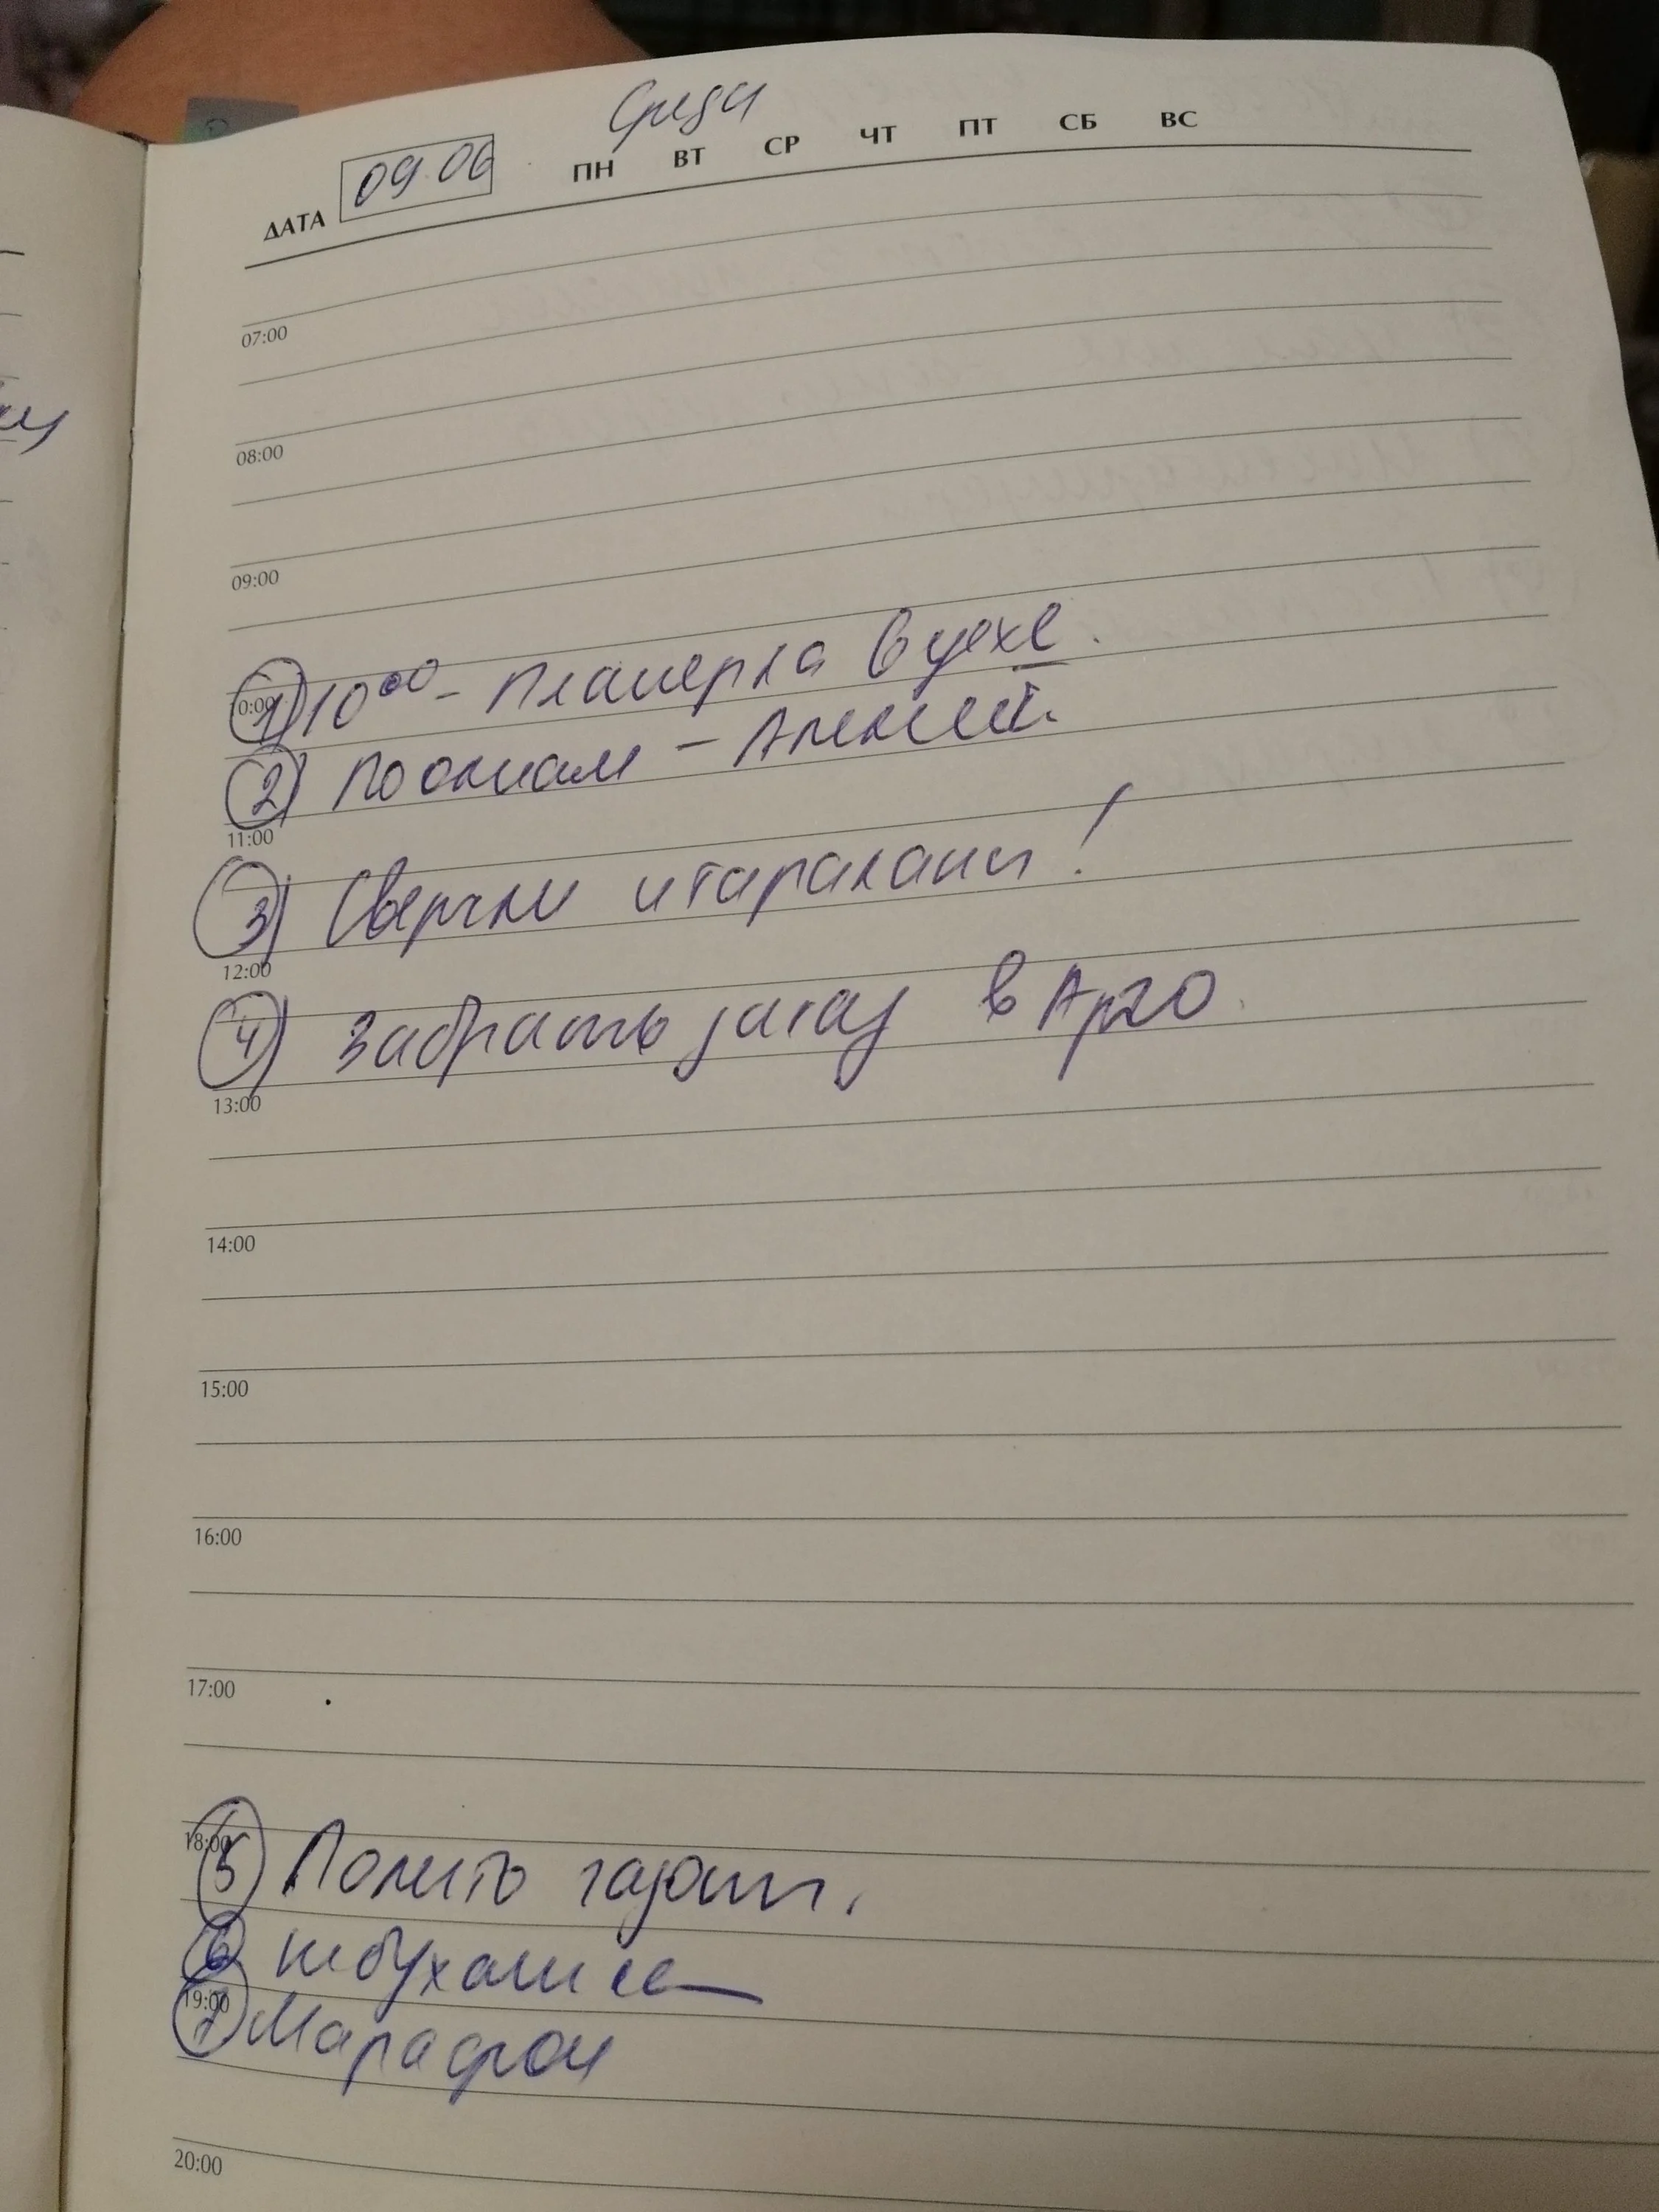 Среда
ДАТА 09.06 ПН ВТ СР ЧТ ПТ СБ ВС
07:00
08:00
09:00
10:00
1) 10⁰⁰ - Планерка в цехе.
2) По окнам - Алексей.
11:00
3) Сверчки и тараканы!
12:00
4) Забрать заказ в Арго.
13:00
14:00
15:00
16:00
17:00
18:00
5 Полить газоны.
6
19:00
7 Марафон
20:00